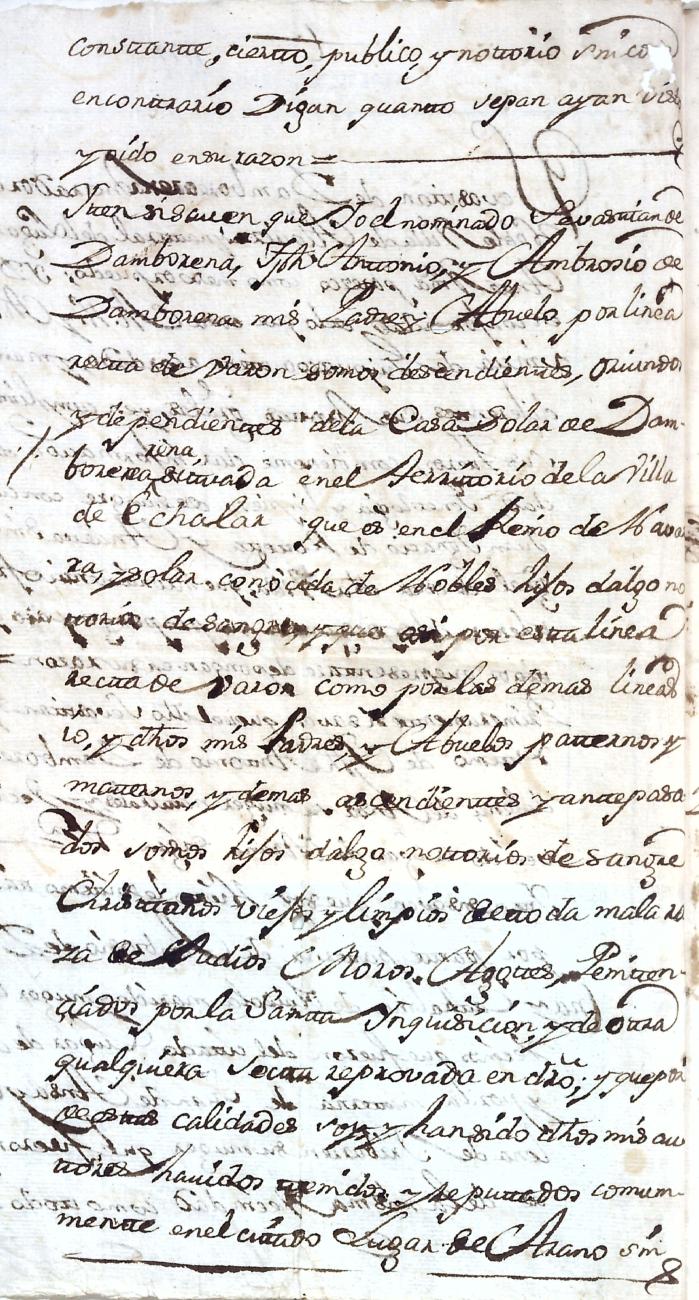 constante, cierto, publico, y nottorio sin co
encontrario Digan quanto sepan ayan visto
y oido en su razon =
Iten si saven que Yo el nominado Sevastian de
Damborena, Jph Antonio, y Ambrosio de
Damborena mis Padre y Abuelo por linea
recta de varon somos descendientes, oriundos
y dependientes dela Casa Solar de Dam-
rena,
borena situada en el territorio de la Villa
de Echalar que es en el Reino de Navar
ra, y solar conocida de Nobles hijos dalgo no
torios de sangre, y que asi por esta linea
recta de varon como por las demas lineas
Io, y dhos mis Padres, y Abuelos patternos y
matternos, y demas ascendientes y antepasa
dos somos hijos dalgo nottorios de sangre
Christianos viejos y limpios de toda mala ra
za de Judios Moros, Agotes, Peniten-
ciados por la Santa Inquisicion, y de otra
qualquiera secta reprovada en dro; y que por
de estas calidades soy, y han sido dhos mis au
tores havidos tenidos, y reputtados comun-
mente en el citado Lugar de Arano sin